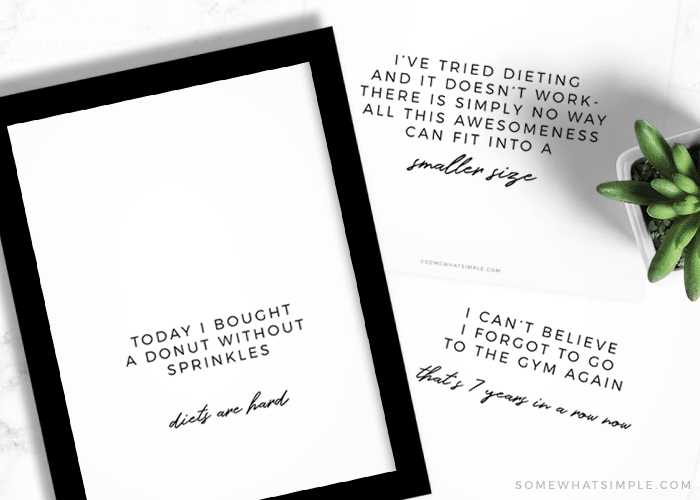 TODAY I BOUGHT
A DONUT WITHOUT
SPRINKLES
diets are hard
I'VE TRIED DIETING
AND IT DOESN'T WORK-
THERE IS SIMPLY NO WAY
ALL THIS AWESOMENESS
CAN FIT INTO A
smaller size
©SOMEWHATSIMPLE.COM
I CAN'T BELIEVE
I FORGOT TO GO
TO THE GYM AGAIN
that's 7 years in a row now
SOMEWHATSIMPLE.COM